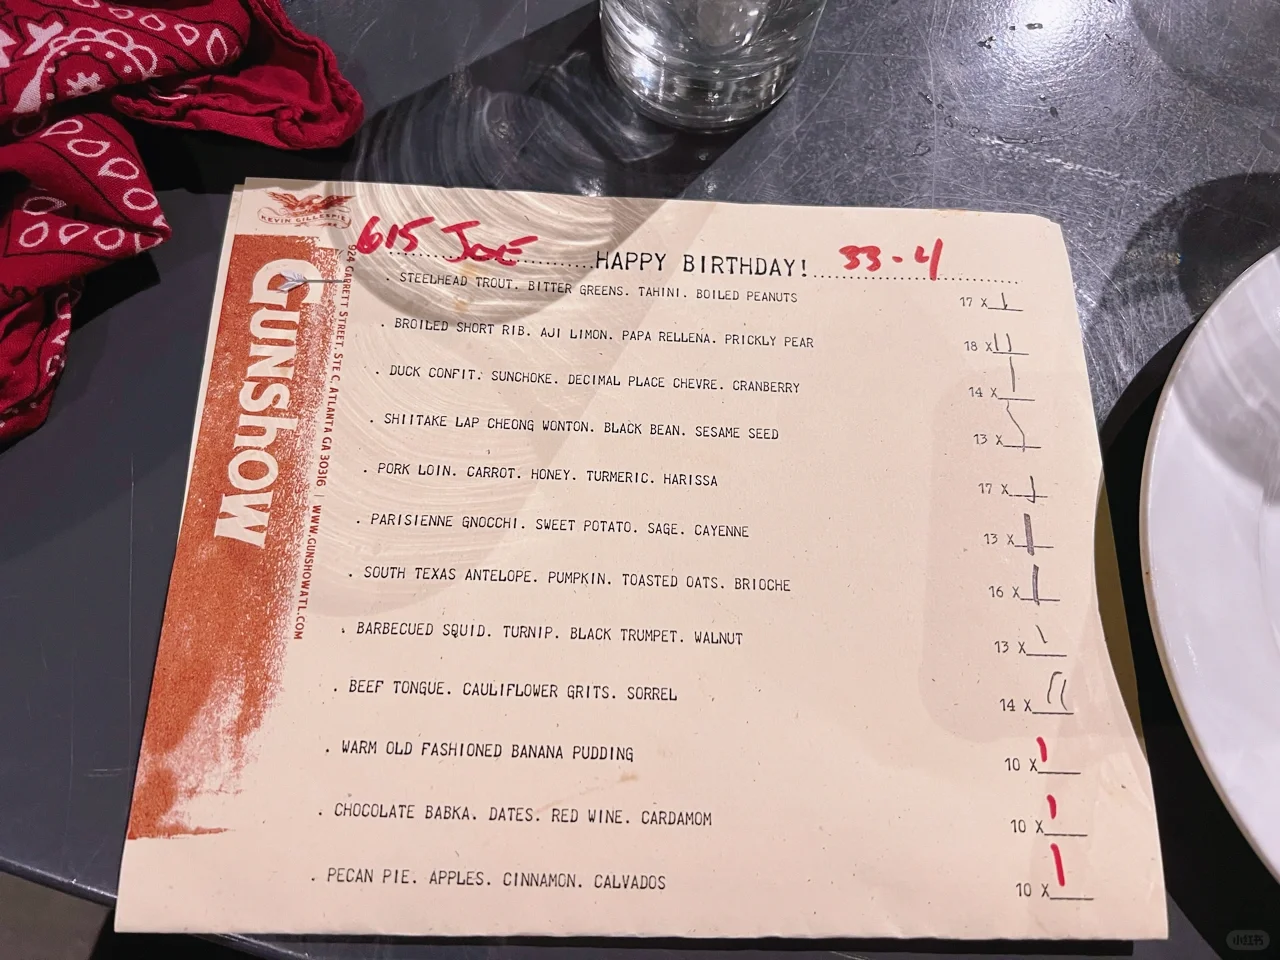 KEVIN GILLESPIE
GUNSHOW
924 GARRETT STREET, STE C, ATLANTA GA 30316 | WWW.GUNSHOWATL.COM
615 JOE HAPPY BIRTHDAY! 33-4
. STEELHEAD TROUT. BITTER GREENS. TAHINI. BOILED PEANUTS 17 X
. BROILED SHORT RIB. AJI LIMON. PAPA RELLENA. PRICKLY PEAR 18 X
. DUCK CONFIT. SUNCHOKE. DECIMAL PLACE CHEVRE. CRANBERRY 14 X
. SHIITAKE LAP CHEONG WONTON. BLACK BEAN. SESAME SEED 13 X
. PORK LOIN. CARROT. HONEY. TURMERIC. HARISSA 17 X
. PARISIENNE GNOCCHI. SWEET POTATO. SAGE. CAYENNE 13 X
. SOUTH TEXAS ANTELOPE. PUMPKIN. TOASTED OATS. BRIOCHE 16 X
. BARBECUED SQUID. TURNIP. BLACK TRUMPET. WALNUT 13 X
. BEEF TONGUE. CAULIFLOWER GRITS. SORREL 14 X
. WARM OLD FASHIONED BANANA PUDDING 10 X
. CHOCOLATE BABKA. DATES. RED WINE. CARDAMOM 10 X
. PECAN PIE. APPLES. CINNAMON. CALVADOS 10 X
小红书